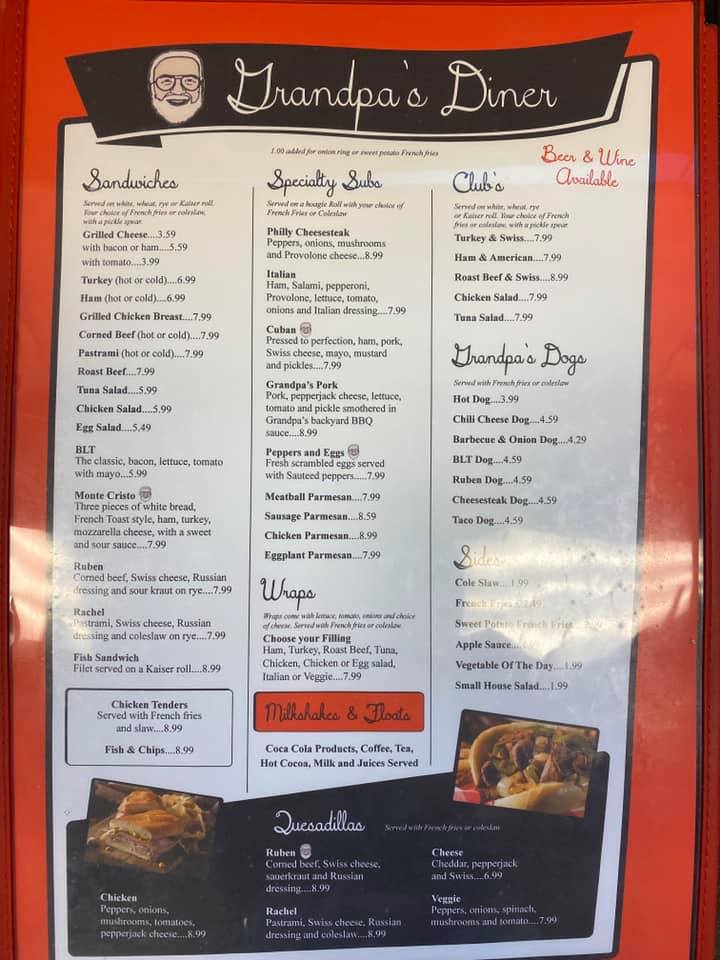 Grandpa's Diner
1.00 added for onion ring or sweet potato French fries
Beer & Wine
Available
Sandwiches
Served on white, wheat, rye or Kaiser roll.
Your choice of French fries or coleslaw,
with a pickle spear.
Grilled Cheese....3.59
with bacon or ham....5.59
with tomato....3.99
Turkey (hot or cold)....6.99
Ham (hot or cold)....6.99
Grilled Chicken Breast....7.99
Corned Beef (hot or cold)....7.99
Pastrami (hot or cold)....7.99
Roast Beef....7.99
Tuna Salad....5.99
Chicken Salad....5.99
Egg Salad....5.49
BLT
The classic, bacon, lettuce, tomato
with mayo...5.99
Monte Cristo
Three pieces of white bread,
French Toast style, ham, turkey,
mozzarella cheese, with a sweet
and sour sauce....7.99
Ruben
Corned beef, Swiss cheese, Russian
dressing and sour kraut on rye....7.99
Rachel
Pastrami, Swiss cheese, Russian
dressing and coleslaw on rye....7.99
Fish Sandwich
Filet served on a Kaiser roll....8.99
Chicken Tenders
Served with French fries
and slaw....8.99
Fish & Chips....8.99
Specialty Subs
Served on a hoagie Roll with your choice of
French Fries or Coleslaw
Philly Cheesesteak
Peppers, onions, mushrooms
and Provolone cheese...8.99
Italian
Ham, Salami, pepperoni,
Provolone, lettuce, tomato,
onions and Italian dressing....7.99
Cuban
Pressed to perfection, ham, pork,
Swiss cheese, mayo, mustard
and pickles....7.99
Grandpa's Pork
Pork, pepperjack cheese, lettuce,
tomato and pickle smothered in
Grandpa's backyard BBQ
sauce....8.99
Peppers and Eggs
Fresh scrambled eggs served
with Sauteed peppers.....7.99
Meatball Parmesan....7.99
Sausage Parmesan....8.59
Chicken Parmesan....8.99
Eggplant Parmesan....7.99
Wraps
Wraps come with lettuce, tomato, onions and choice
of cheese. Served with French fries or coleslaw.
Choose your Filling
Ham, Turkey, Roast Beef, Tuna,
Chicken, Chicken or Egg salad,
Italian or Veggie....7.99
Milkshakes & Floats
Coca Cola Products, Coffee, Tea,
Hot Cocoa, Milk and Juices Served
Club's
Served on white, wheat, rye
or Kaiser roll. Your choice of French
fries or coleslaw, with a pickle spear.
Turkey & Swiss....7.99
Ham & American....7.99
Roast Beef & Swiss....8.99
Chicken Salad....7.99
Tuna Salad....7.99
Grandpa's Dogs
Served with French fries or coleslaw
Hot Dog....3.99
Chili Cheese Dog....4.59
Barbecue & Onion Dog....4.29
BLT Dog....4.59
Ruben Dog....4.59
Cheesesteak Dog....4.59
Taco Dog....4.59
Sides
Cole Slaw....1.99
French Fries
Sweet Potato French Fries
Apple Sauce
Vegetable Of The Day....1.99
Small House Salad....1.99
Quesadillas
Served with French fries or coleslaw
Chicken
Peppers, onions,
mushrooms, tomatoes,
pepperjack cheese....8.99
Ruben
Corned beef, Swiss cheese,
sauerkraut and Russian
dressing....8.99
Rachel
Pastrami, Swiss cheese, Russian
dressing and coleslaw....8.99
Cheese
Cheddar, pepperjack
and Swiss....6.99
Veggie
Peppers, onions, spinach,
mushrooms and tomato....7.99